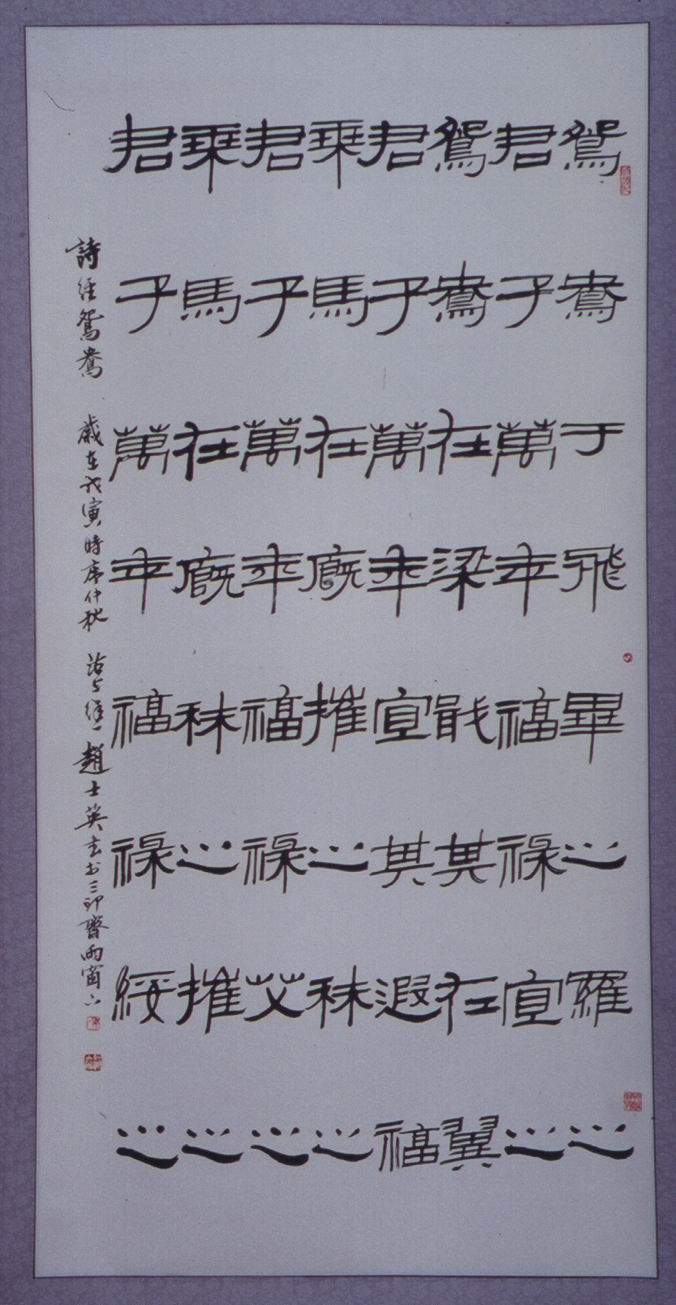 鴛鴦于飛畢之羅之
君子萬年福祿宜之
鴛鴦在梁戢其左翼
君子萬年宜其遐福
乘馬在廐摧之秣之
君子萬年福祿艾之
乘馬在廐秣之摧之
君子萬年福祿綏之
詩經鴛鴦 歲在戊寅時序仲秋 沽上 趙士英書於三印齋雨窗下